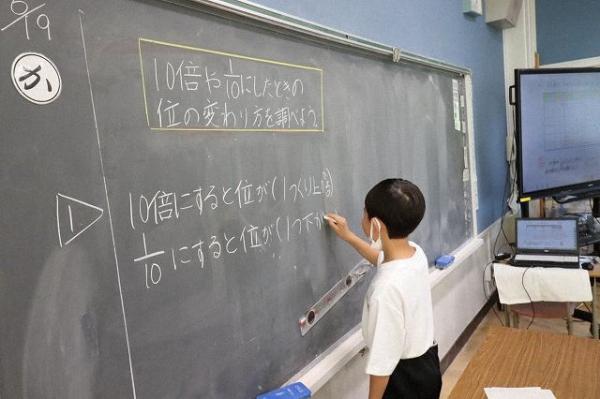 6/19
か、
10倍や1/10にしたときの
位の変わり方を調べよう。
1
10倍にすると位が(1つくり上がる)
1/10にすると位が(1つ下が